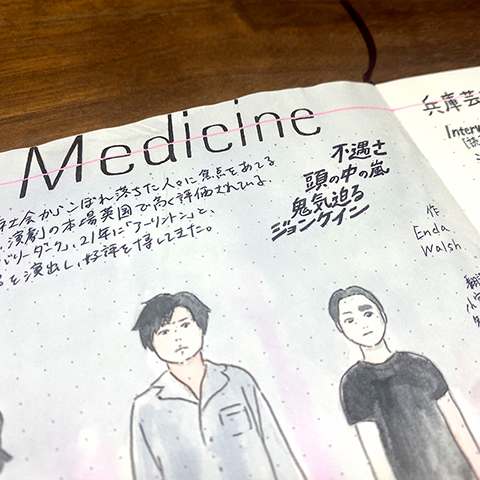 Medicine
社会からこぼれ落ちた人々に焦点をあてる
演劇の本場英国で高く評価されている
バリーターク」、21年に「アーリントン」と、
を演出し、好評を博してきた。
不遇さ
頭の中の嵐
鬼気迫る
ジョンケイン
兵庫芸
Inter
作
Enda
Walsh